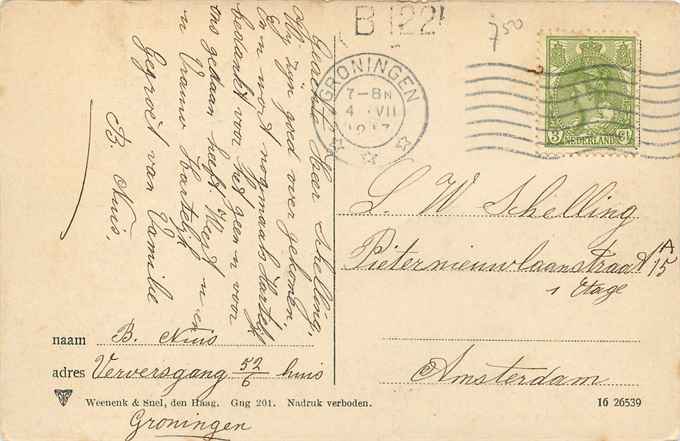 B 122
7 50
GRONINGEN
7-8N
4 VII
1917
3 ct
NEDERLAND
Geachte Heer Schelling,
Wij zijn goed over gekomen,
en word nogmaals hartelijk
bedankt voor het geen u voor
ons gedaan heeft. Weest u en
u Vrouw hartelijk
Gegroet van Familie
B. Nuis,
S. W Schelling
Pieternieuwlaanstraat 15 A
1 Etage
Amsterdam
naam B. Nuis
adres Ververschgang 52/6 huis
Groningen
Weenenk & Snel, den Haag. Gng 201. Nadruk verboden.
16 26539